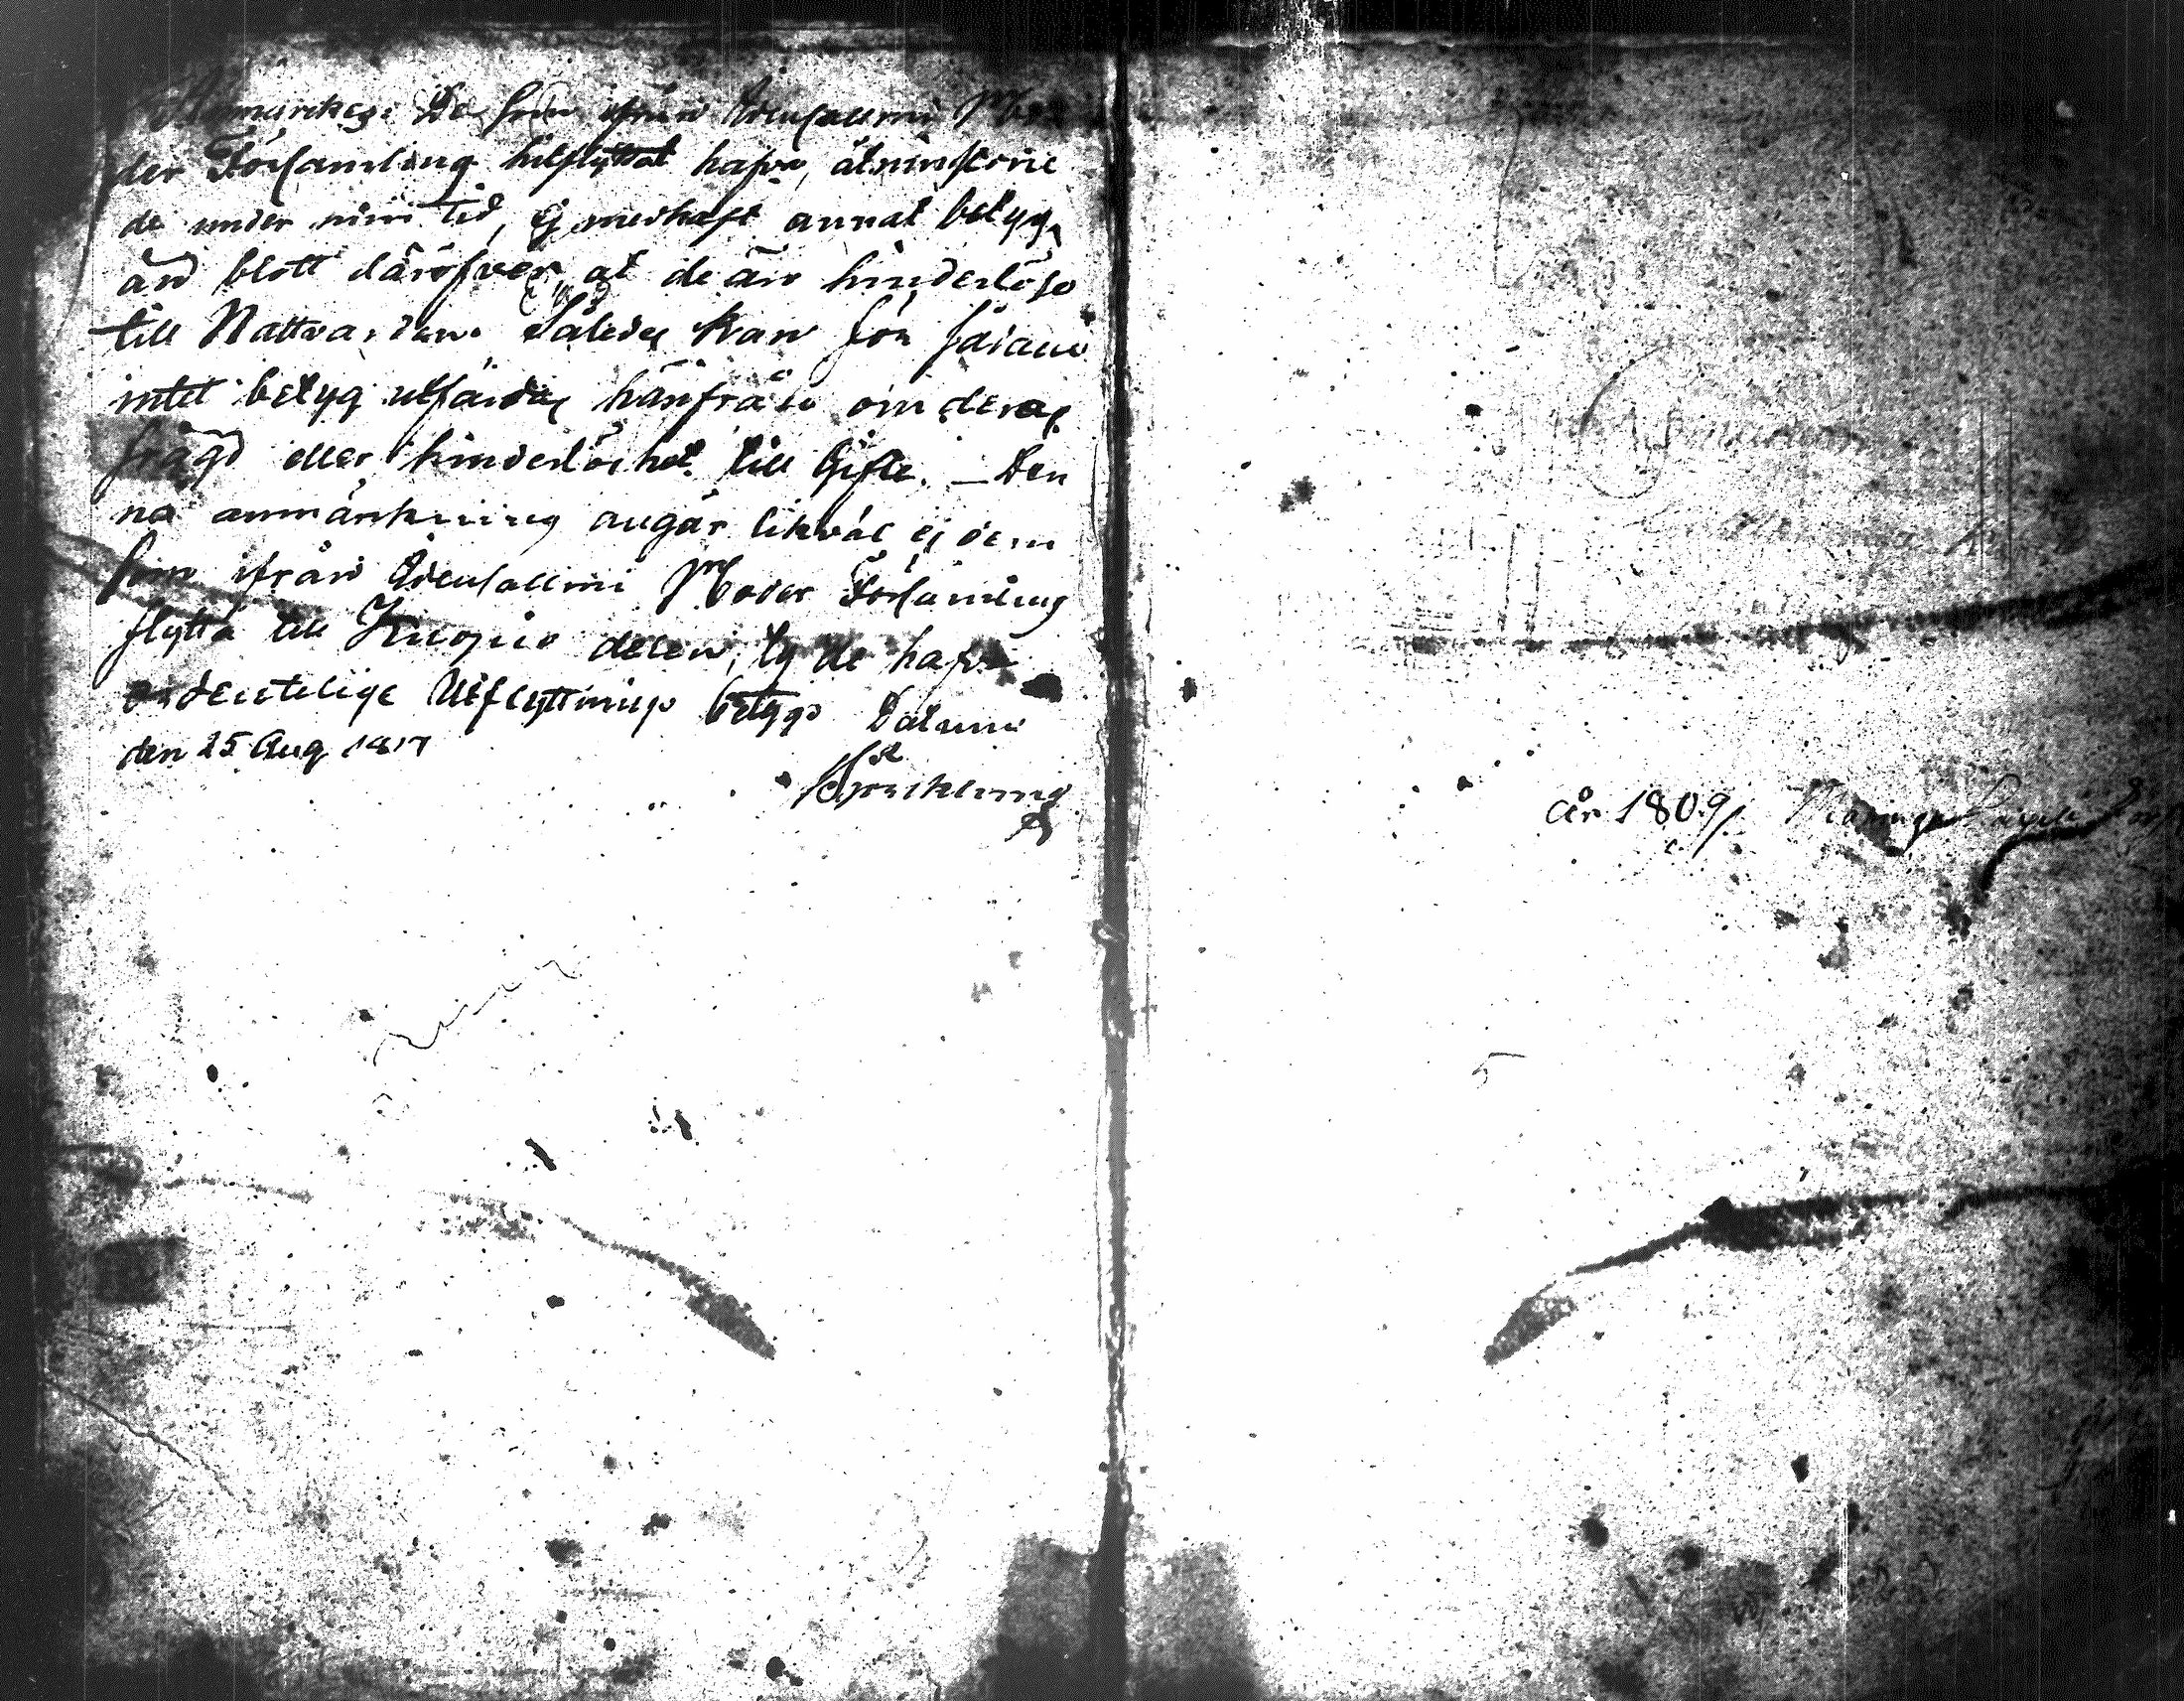 Anmärckes: De som ifrån Idensallmi Mo
der Församling hitflyttat hafva, åtminstone
de under min tid, ej medhaft annat betyg,
än blott däröfver, at de äro hinderlöse
till Nattvarden. Således kan för sådane
intet betyg utfärdas härifrån om deras
frägd eller hinderlöshet till Gifte. – Den
na anmärkning angår likväl ej dem
som ifrån Idensallmi Moder Församling
flytta till Kuopio delen, ty de hafva
ordentelige Utflyttnings betyg. Datum
den 25 Aug 1817
år 1809